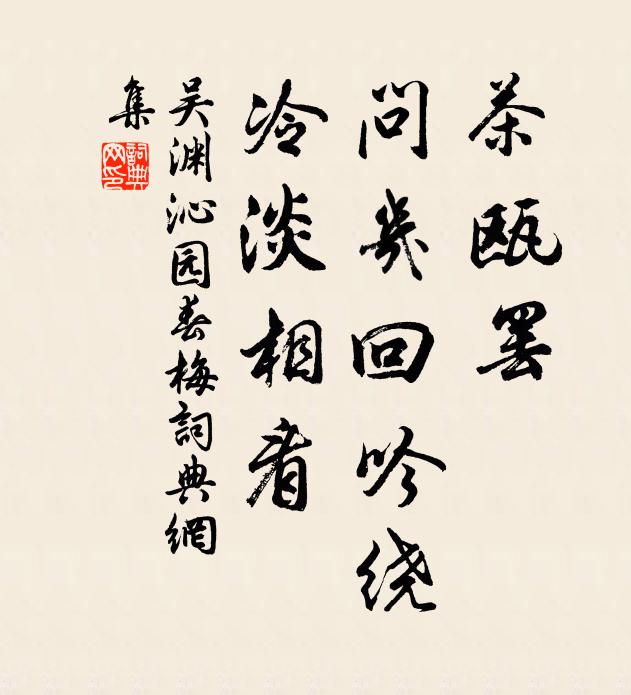 茶瓯罢
问几回吟绕
冷淡相看
吴渊沁园春梅詞典網
集
詞典網印